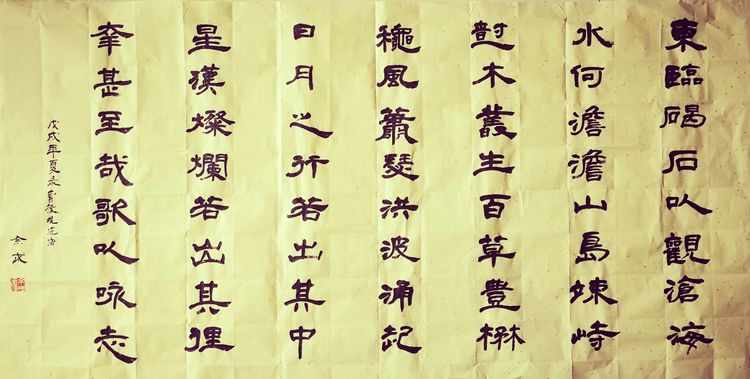 東臨碣石以觀滄海
水何澹澹山島竦峙
樹木叢生百草豐楙
穐風蕭瑟洪波涌起
日月之行若出其中
星漢燦爛若出其裡
幸甚至哉歌以咏志
戊戌年夏录曹操观沧海